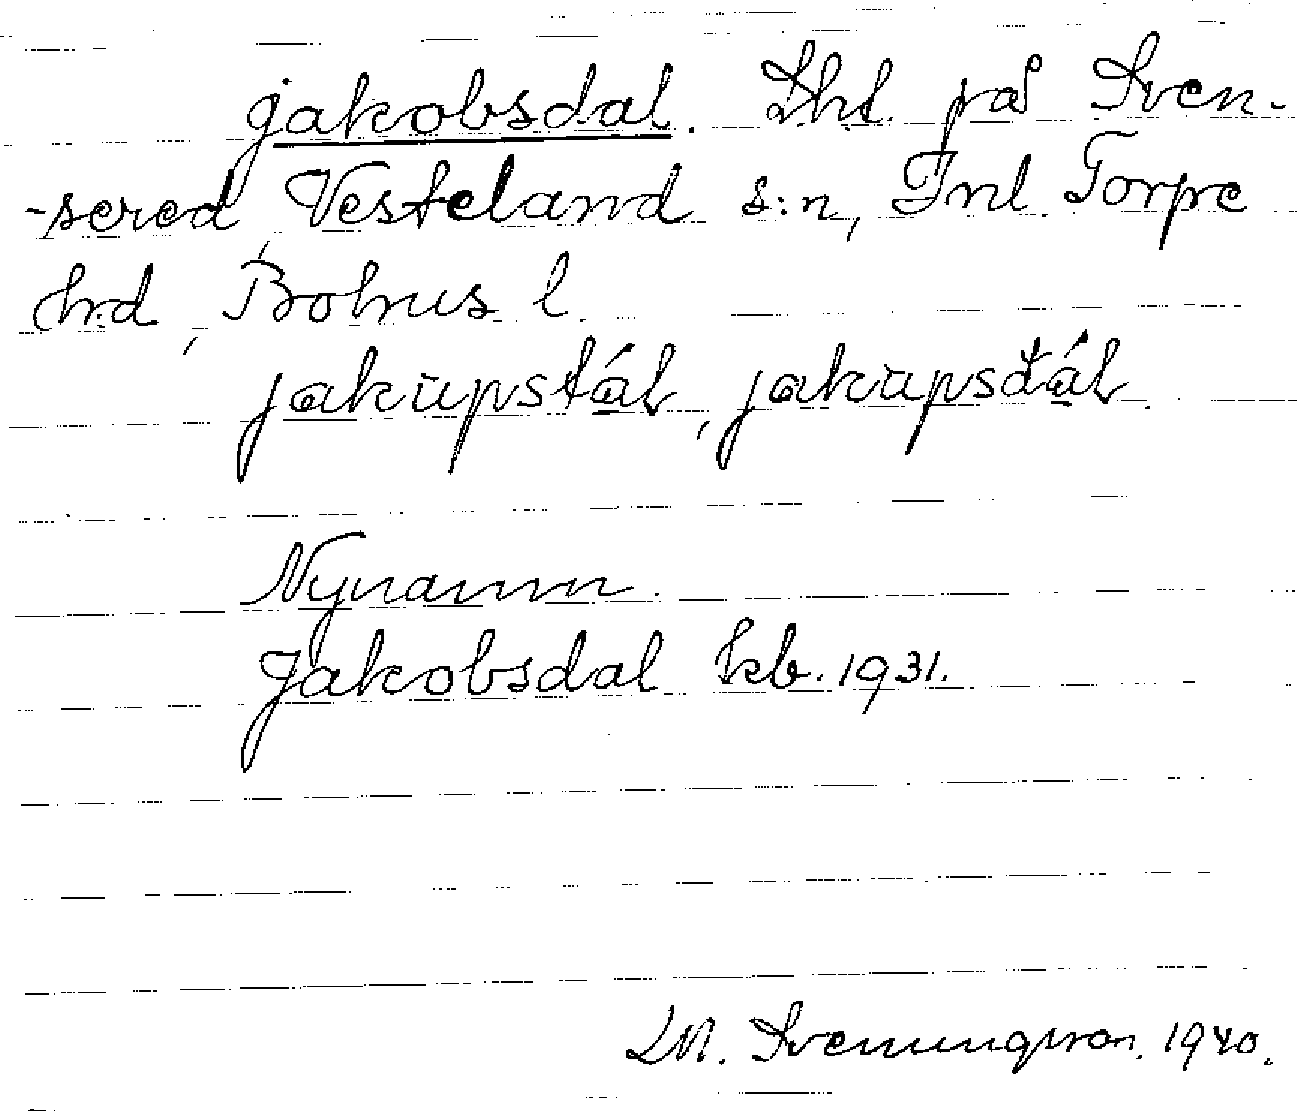 Jakobsdal. Lht. på Sven-
-sered, Västerland s:n, Inl. Torpe
hrd, Bohus l.
jakupstál, jakupsdál.
Nynamn.
Jakobsdal kb. 1931.
1940.